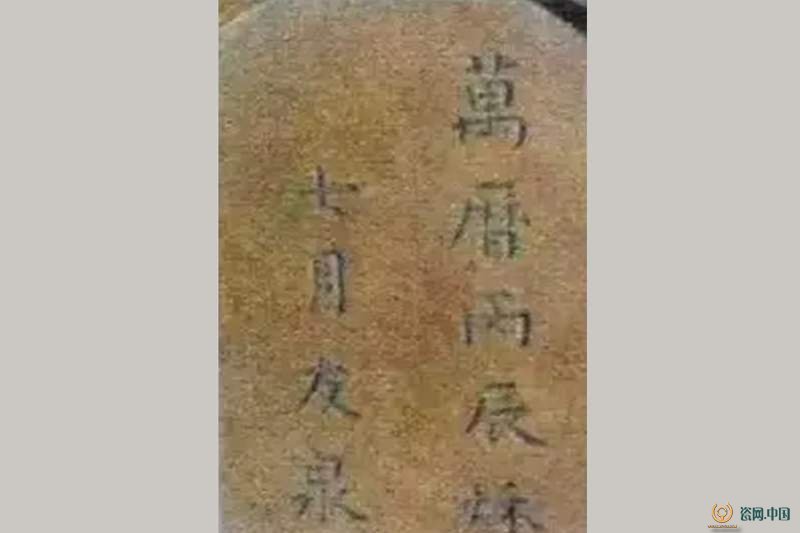 萬曆丙辰秌
七月友泉
瓷网.中国